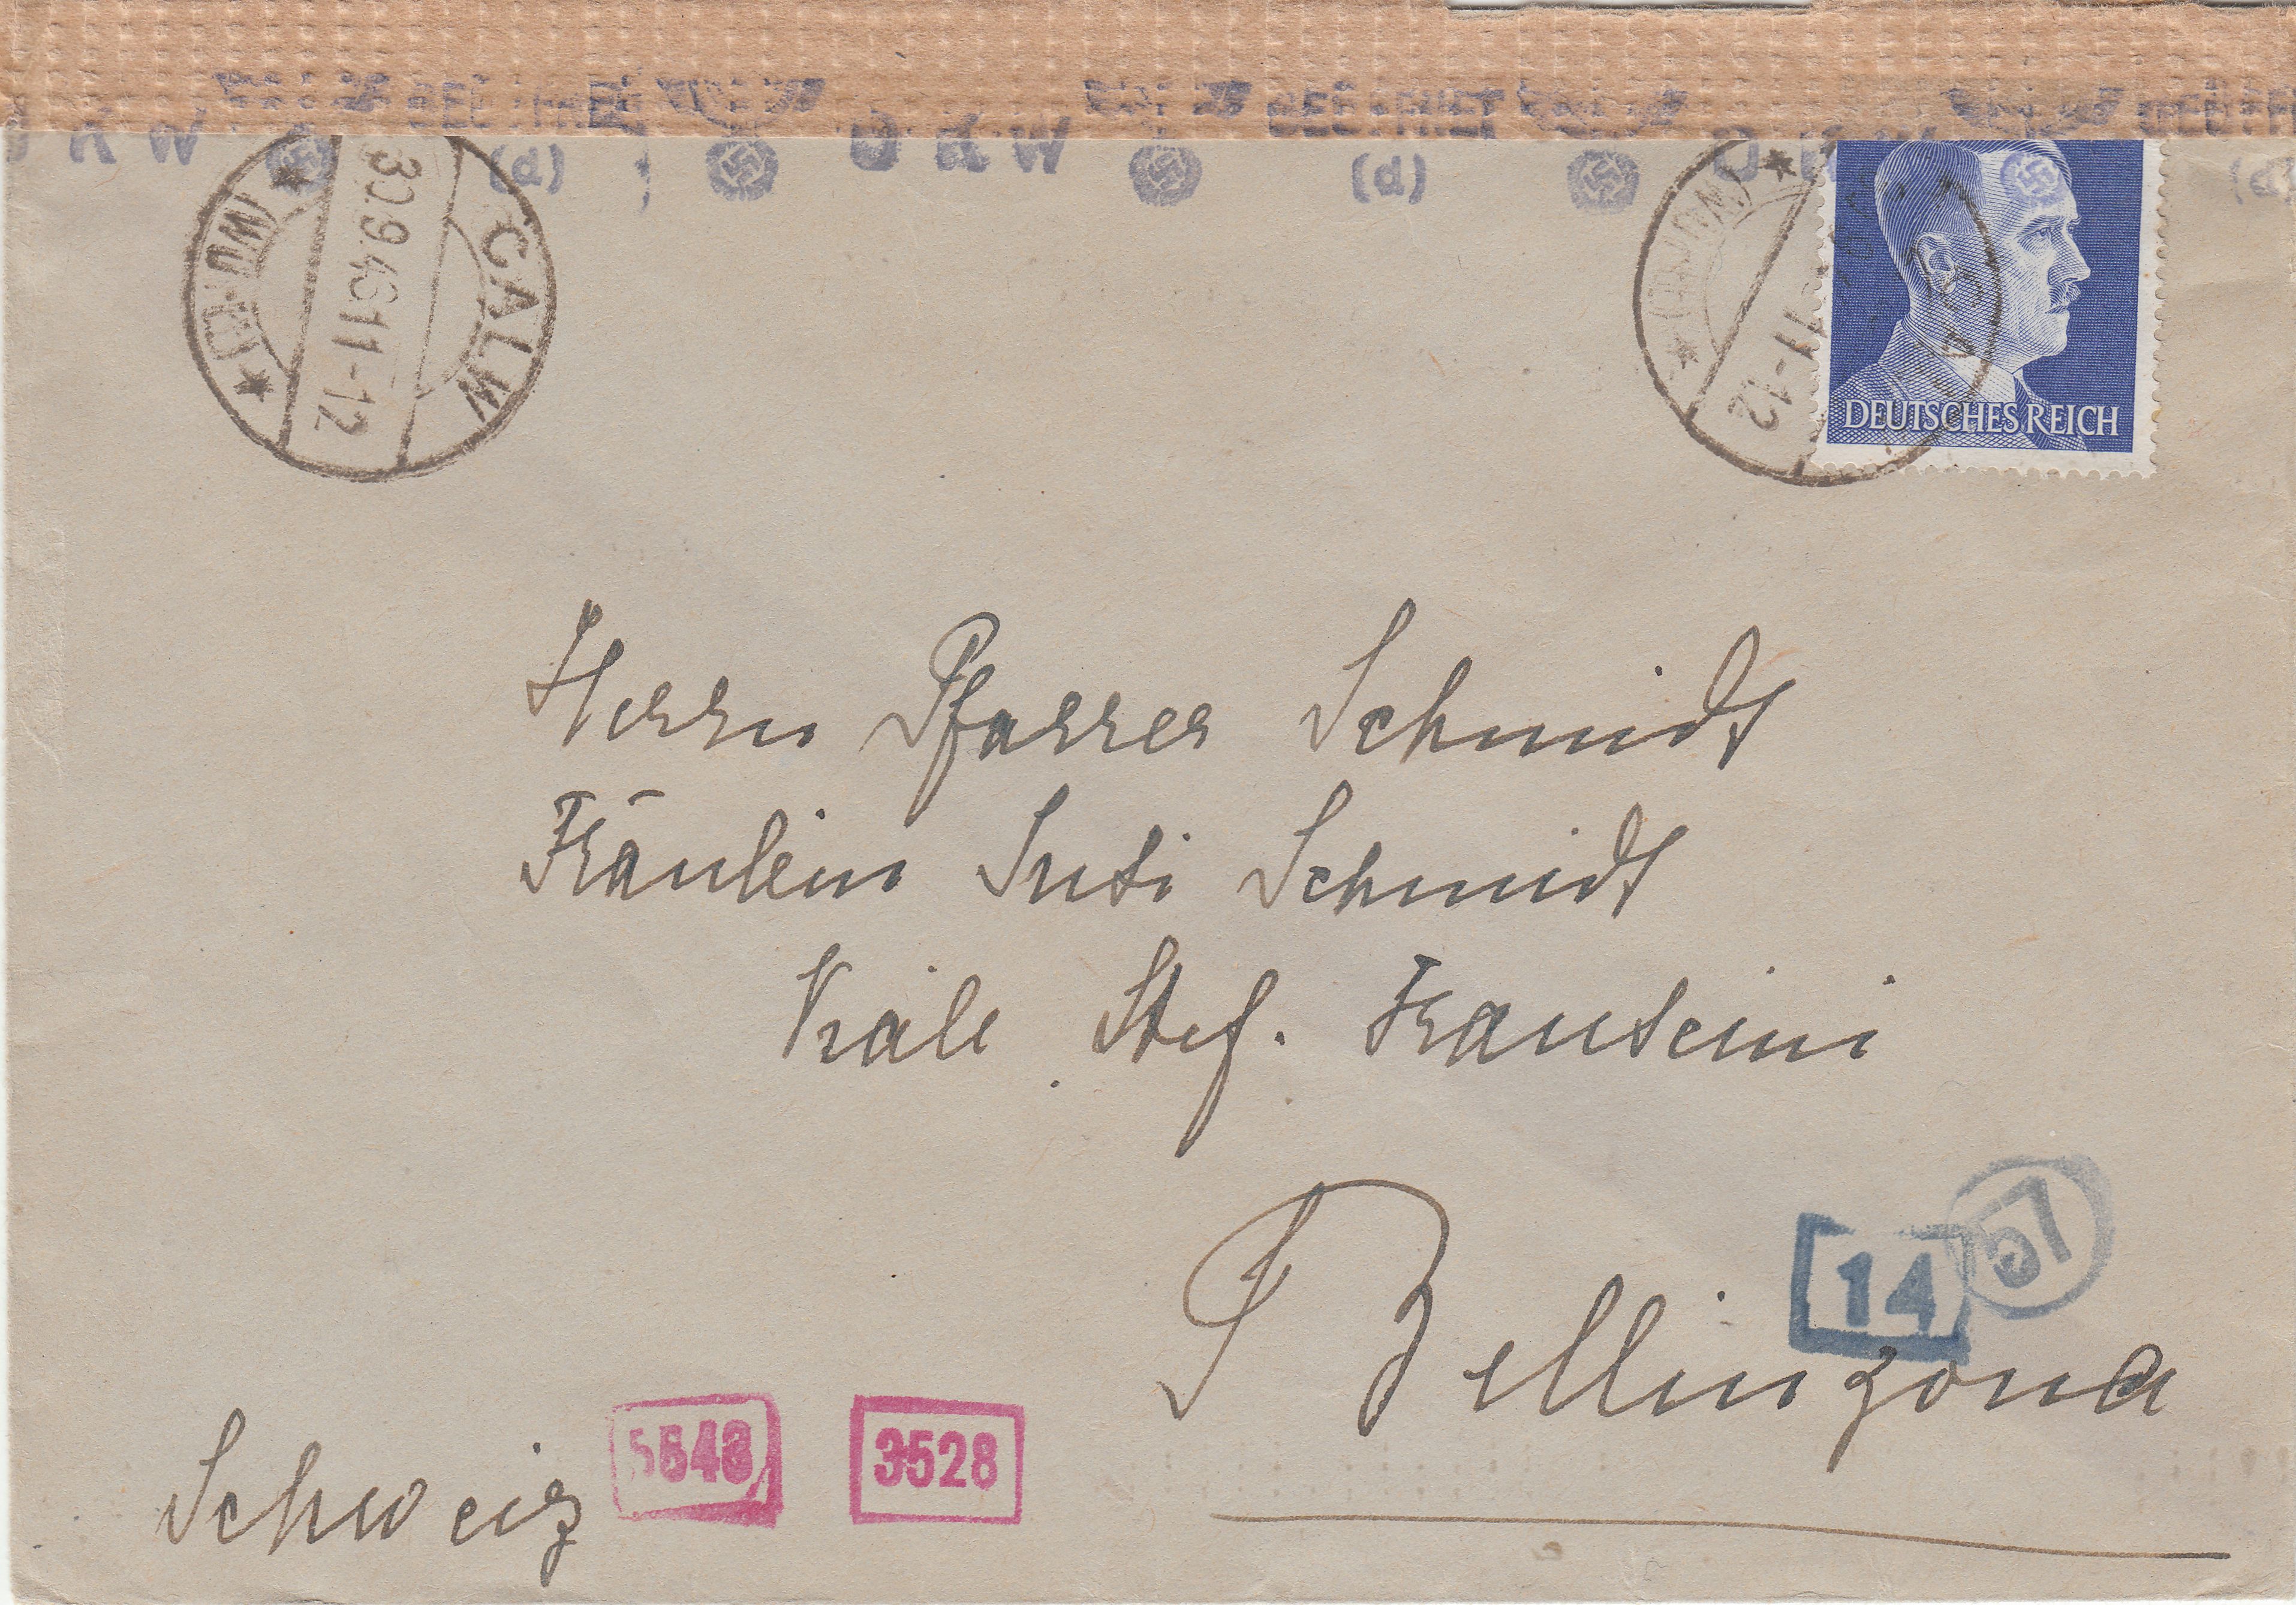 O K W
GEÖFFNET
(d)
O K W
GEÖFFNET
(d)
CALW
30.9.43 11-12
11-12
DEUTSCHES REICH
Herrn Pfarrer Schmidt
Fräulein Susi Schmidt
Viale Stef. Franscini
Bellinzona
14
57
Schweiz
3528